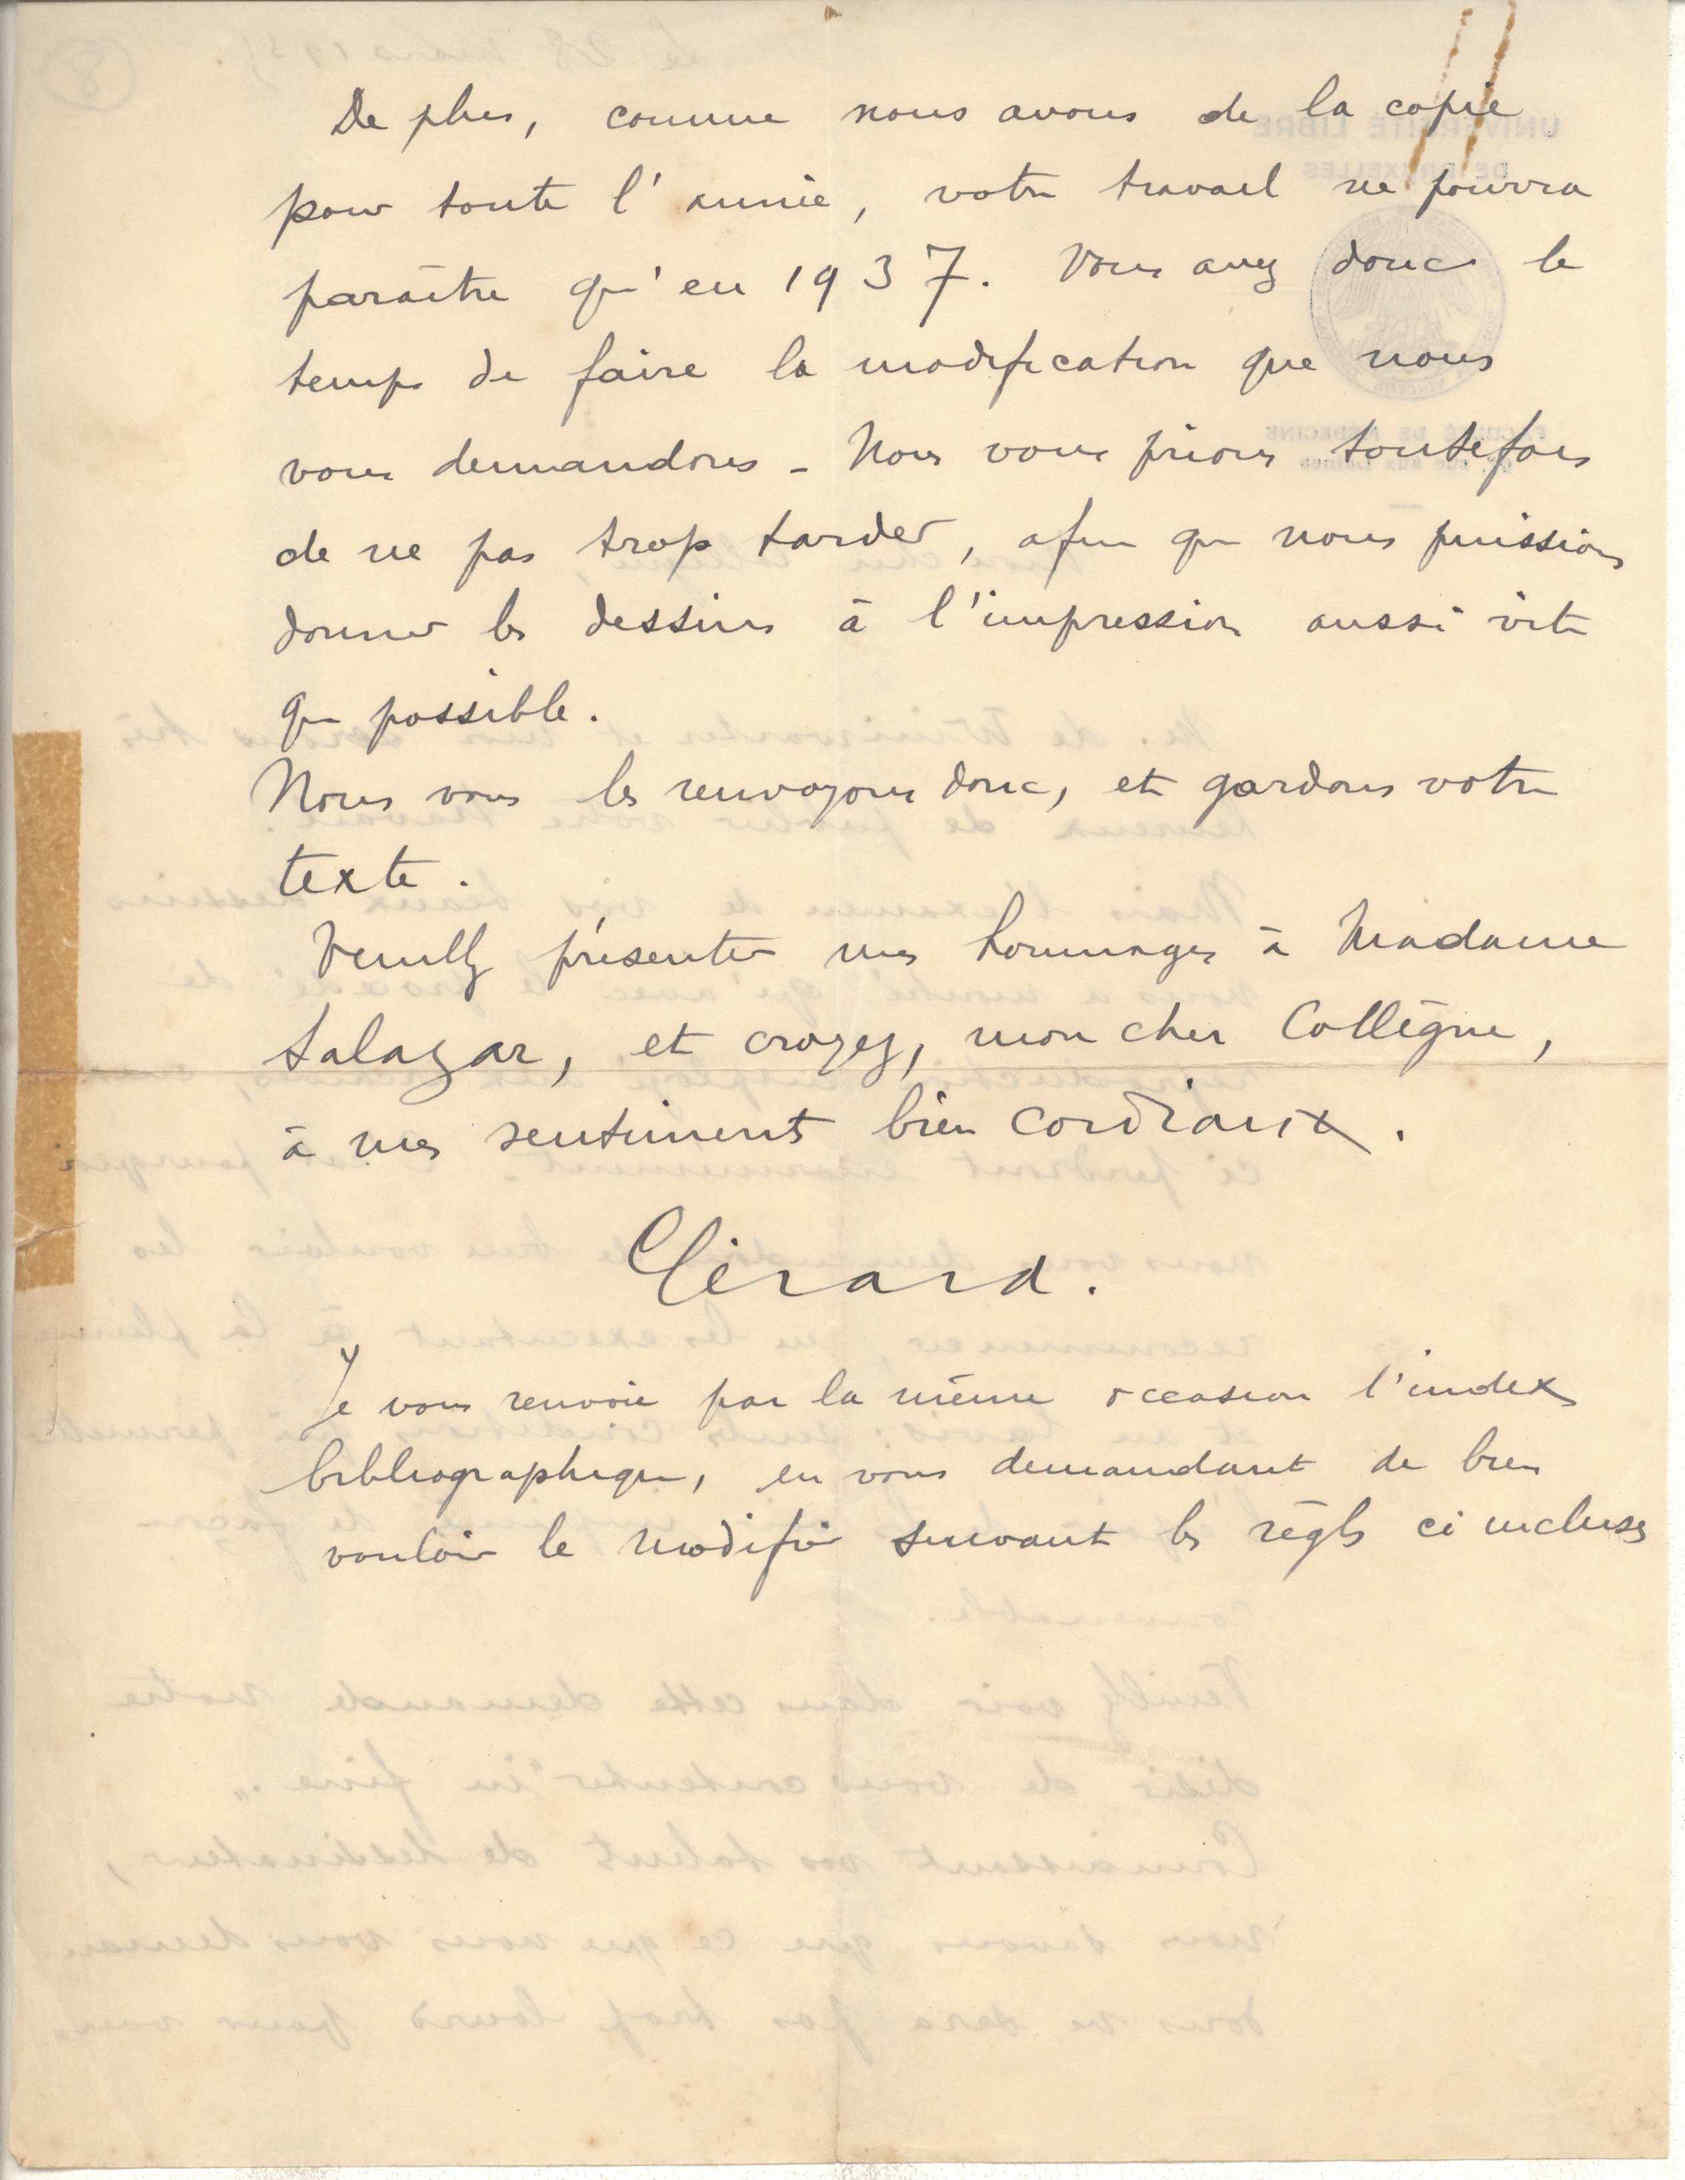 De plus, comme nous avons de la copie
pour toute l'année, votre travail ne pourra
paraître qu'en 1937. Vous avez donc le
temps de faire la modification que nous
vous demandons - Nous vous prions toutefois
de ne pas trop tarder, afin que nous puissions
donner les dessins à l'impression aussi vite
que possible.
Nous vous les renvoyons donc, et gardons votre
texte.
Veuillez présenter mes hommages à Madame
Salazar, et croyez, mon cher Collègue,
à mes sentiments bien cordiaux.
Gérard.
Je vous renvoie par la même occasion l'index
bibliographique, en vous demandant de bien
vouloir le modifier suivant les règles ci incluses